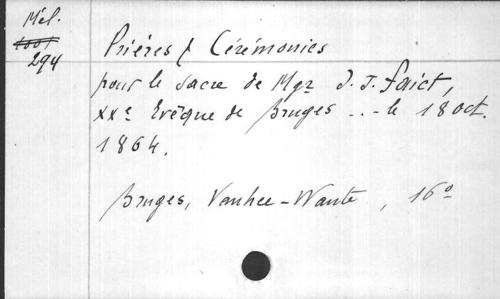 Mél.
1001
294
Prières & Cérémonies
pour le sacre de Mgr J. J. Faict,
XXe Evêque de Bruges ... le 18 oct.
1864.
Bruges, Vanhee-Wante, 16o